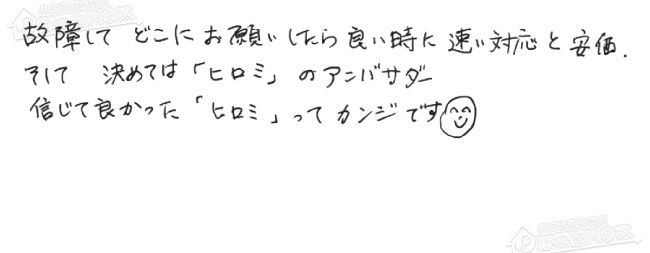 故障して どこに お願いしたら良い時に 速い対応と安価.
そして 決めては「ヒロミ」のアンバサダー
信じて良かった「ヒロミ」って カンジです